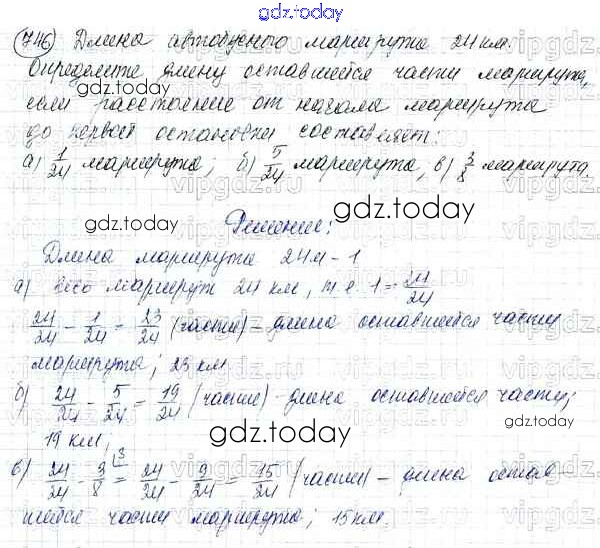 gdz.today
746 Длина автобусного маршрута 24 км.
Определите длину оставшейся части маршрута,
если расстояние от начала маршрута
до первой остановки составляет:
а) 1/24 маршрута; б) 5/24 маршрута, в) 3/8 маршрута.
gdz.today
Решение:
Длина маршрута 24 - 1
а) Весь маршрут 24 км, т.е. 1 = 24/24
24/24 - 1/24 = 23/24 (части) - длина оставшейся части
маршрута; 23 км
б) 24/24 - 5/24 = 19/24 (части) - длина оставшейся части;
19 км,
gdz.today
в) 24/24 - 3/8 \3 = 24/24 - 9/24 = 15/24 (части) - длина остав-
шейся части маршрута; 15 км.
gdz.today